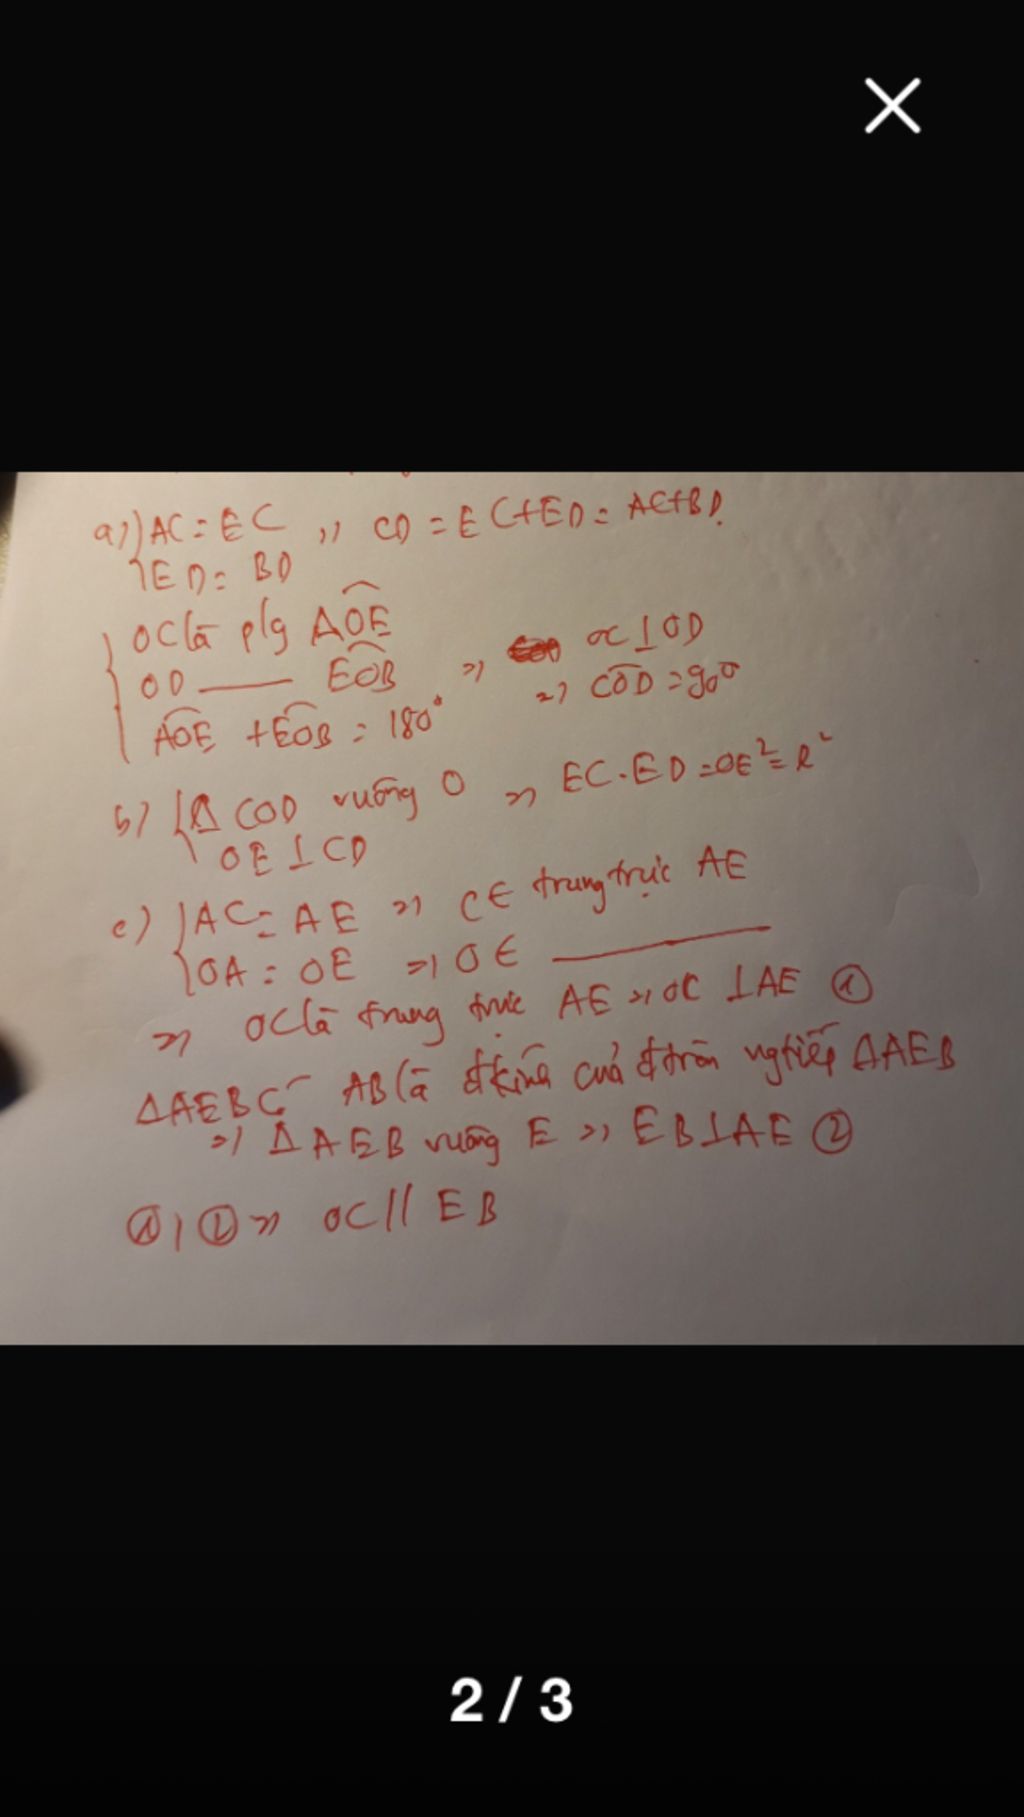 a) { AC = EC => CD = EC + ED = AC + BD.
ED = BD
OC là p/g AOE
OD ——— EOB => OC ⊥ OD
AOE + EOB = 180° => COD = 90°
b) { Δ COD vuông O => EC . ED = OE² = R²
OE ⊥ CD
c) { AC = AE => C ∈ trung trực AE
OA = OE => O ∈ ———
=> OC là trung trực AE => OC ⊥ AE ①
ΔAEB có AB là đkính của đtròn ngtiếp ΔAEB
=> Δ AEB vuông E => EB ⊥ AE ②
①, ② => OC // EB
2 / 3